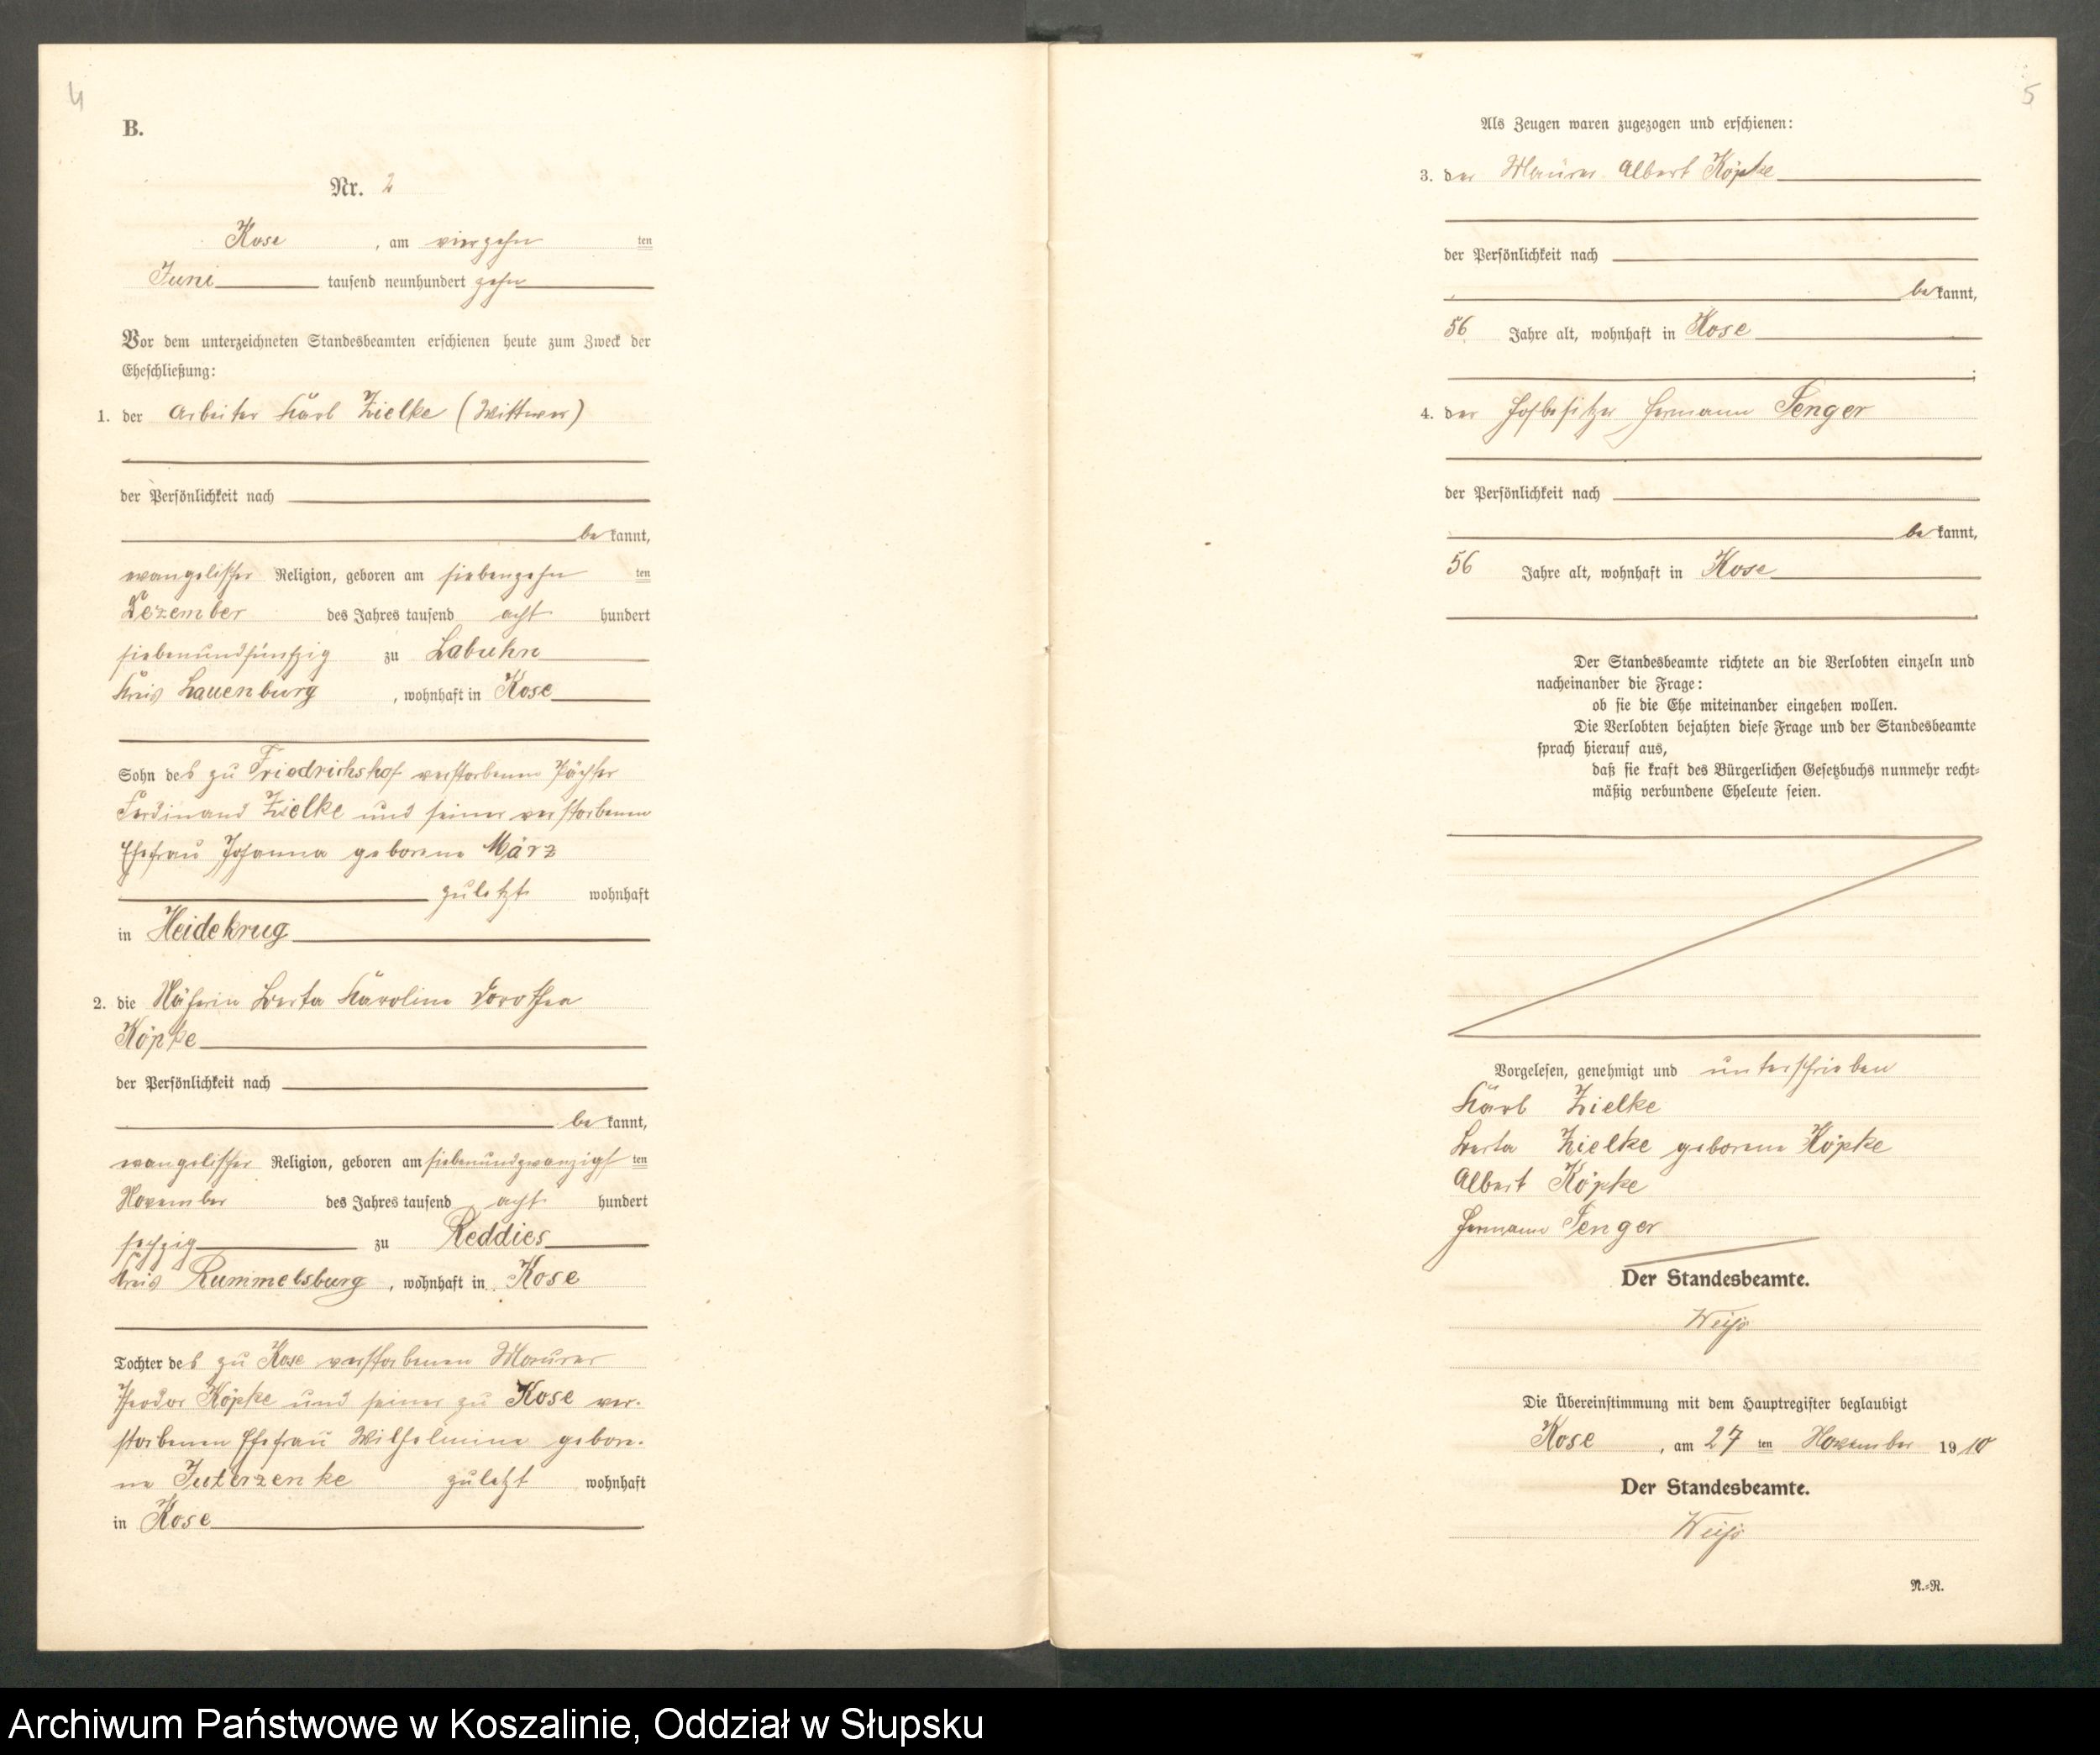 4
B.
Nr. 2
Kose, am vierzehn ten
Juni tausend neunhundert zehn
Vor dem unterzeichneten Standesbeamten erschienen heute zum Zweck der
Eheschließung:
1. der Arbeiter Karl Zielke (Wittwer)
der Persönlichkeit nach
bekannt,
evangelischer Religion, geboren am siebenzehn ten
Dezember des Jahres tausend acht hundert
siebenundfünfzig zu Labuhn
Kreis Lauenburg, wohnhaft in Kose
Sohn des zu Friedrichshof verstorbenen Pächter
Ferdinand Zielke und seiner verstorbenen
Ehefrau Johanna geborene März
zuletzt wohnhaft
in Heidekrug
2. die Näherin Berta Karoline Dorothea
Köpke
der Persönlichkeit nach
bekannt,
evangelischer Religion, geboren am siebenundzwanzigsten
November des Jahres tausend acht hundert
sechzig zu Reddies
Kreis Rummelsburg, wohnhaft in Kose
Tochter des zu Kose verstorbenen Maurer
Theodor Köpke und seiner zu Kose ver-
storbenen Ehefrau Wilhelmine gebore-
ne Juterzenke zuletzt wohnhaft
in Kose
5
Als Zeugen waren zugezogen und erschienen:
3. der Maurer Albert Köpke
der Persönlichkeit nach
bekannt,
56 Jahre alt, wohnhaft in Kose
;
4. der Hofbesitzer Hermann Penger
der Persönlichkeit nach
bekannt,
56 Jahre alt, wohnhaft in Kose
Der Standesbeamte richtete an die Verlobten einzeln und
nacheinander die Frage:
ob sie die Ehe miteinander eingehen wollen.
Die Verlobten bejahten diese Frage und der Standesbeamte
sprach hierauf aus,
daß sie kraft des Bürgerlichen Gesetzbuchs nunmehr recht-
mäßig verbundene Eheleute seien.
Vorgelesen, genehmigt und unterschrieben
Karl Zielke
Berta Zielke geborene Köpke
Albert Köpke
Hermann Penger
Der Standesbeamte.
Weiß
Die Übereinstimmung mit dem Hauptregister beglaubigt
Kose, am 27 ten November 1910
Der Standesbeamte.
Weiß
N.-R.
Archiwum Państwowe w Koszalinie, Oddział w Słupsku